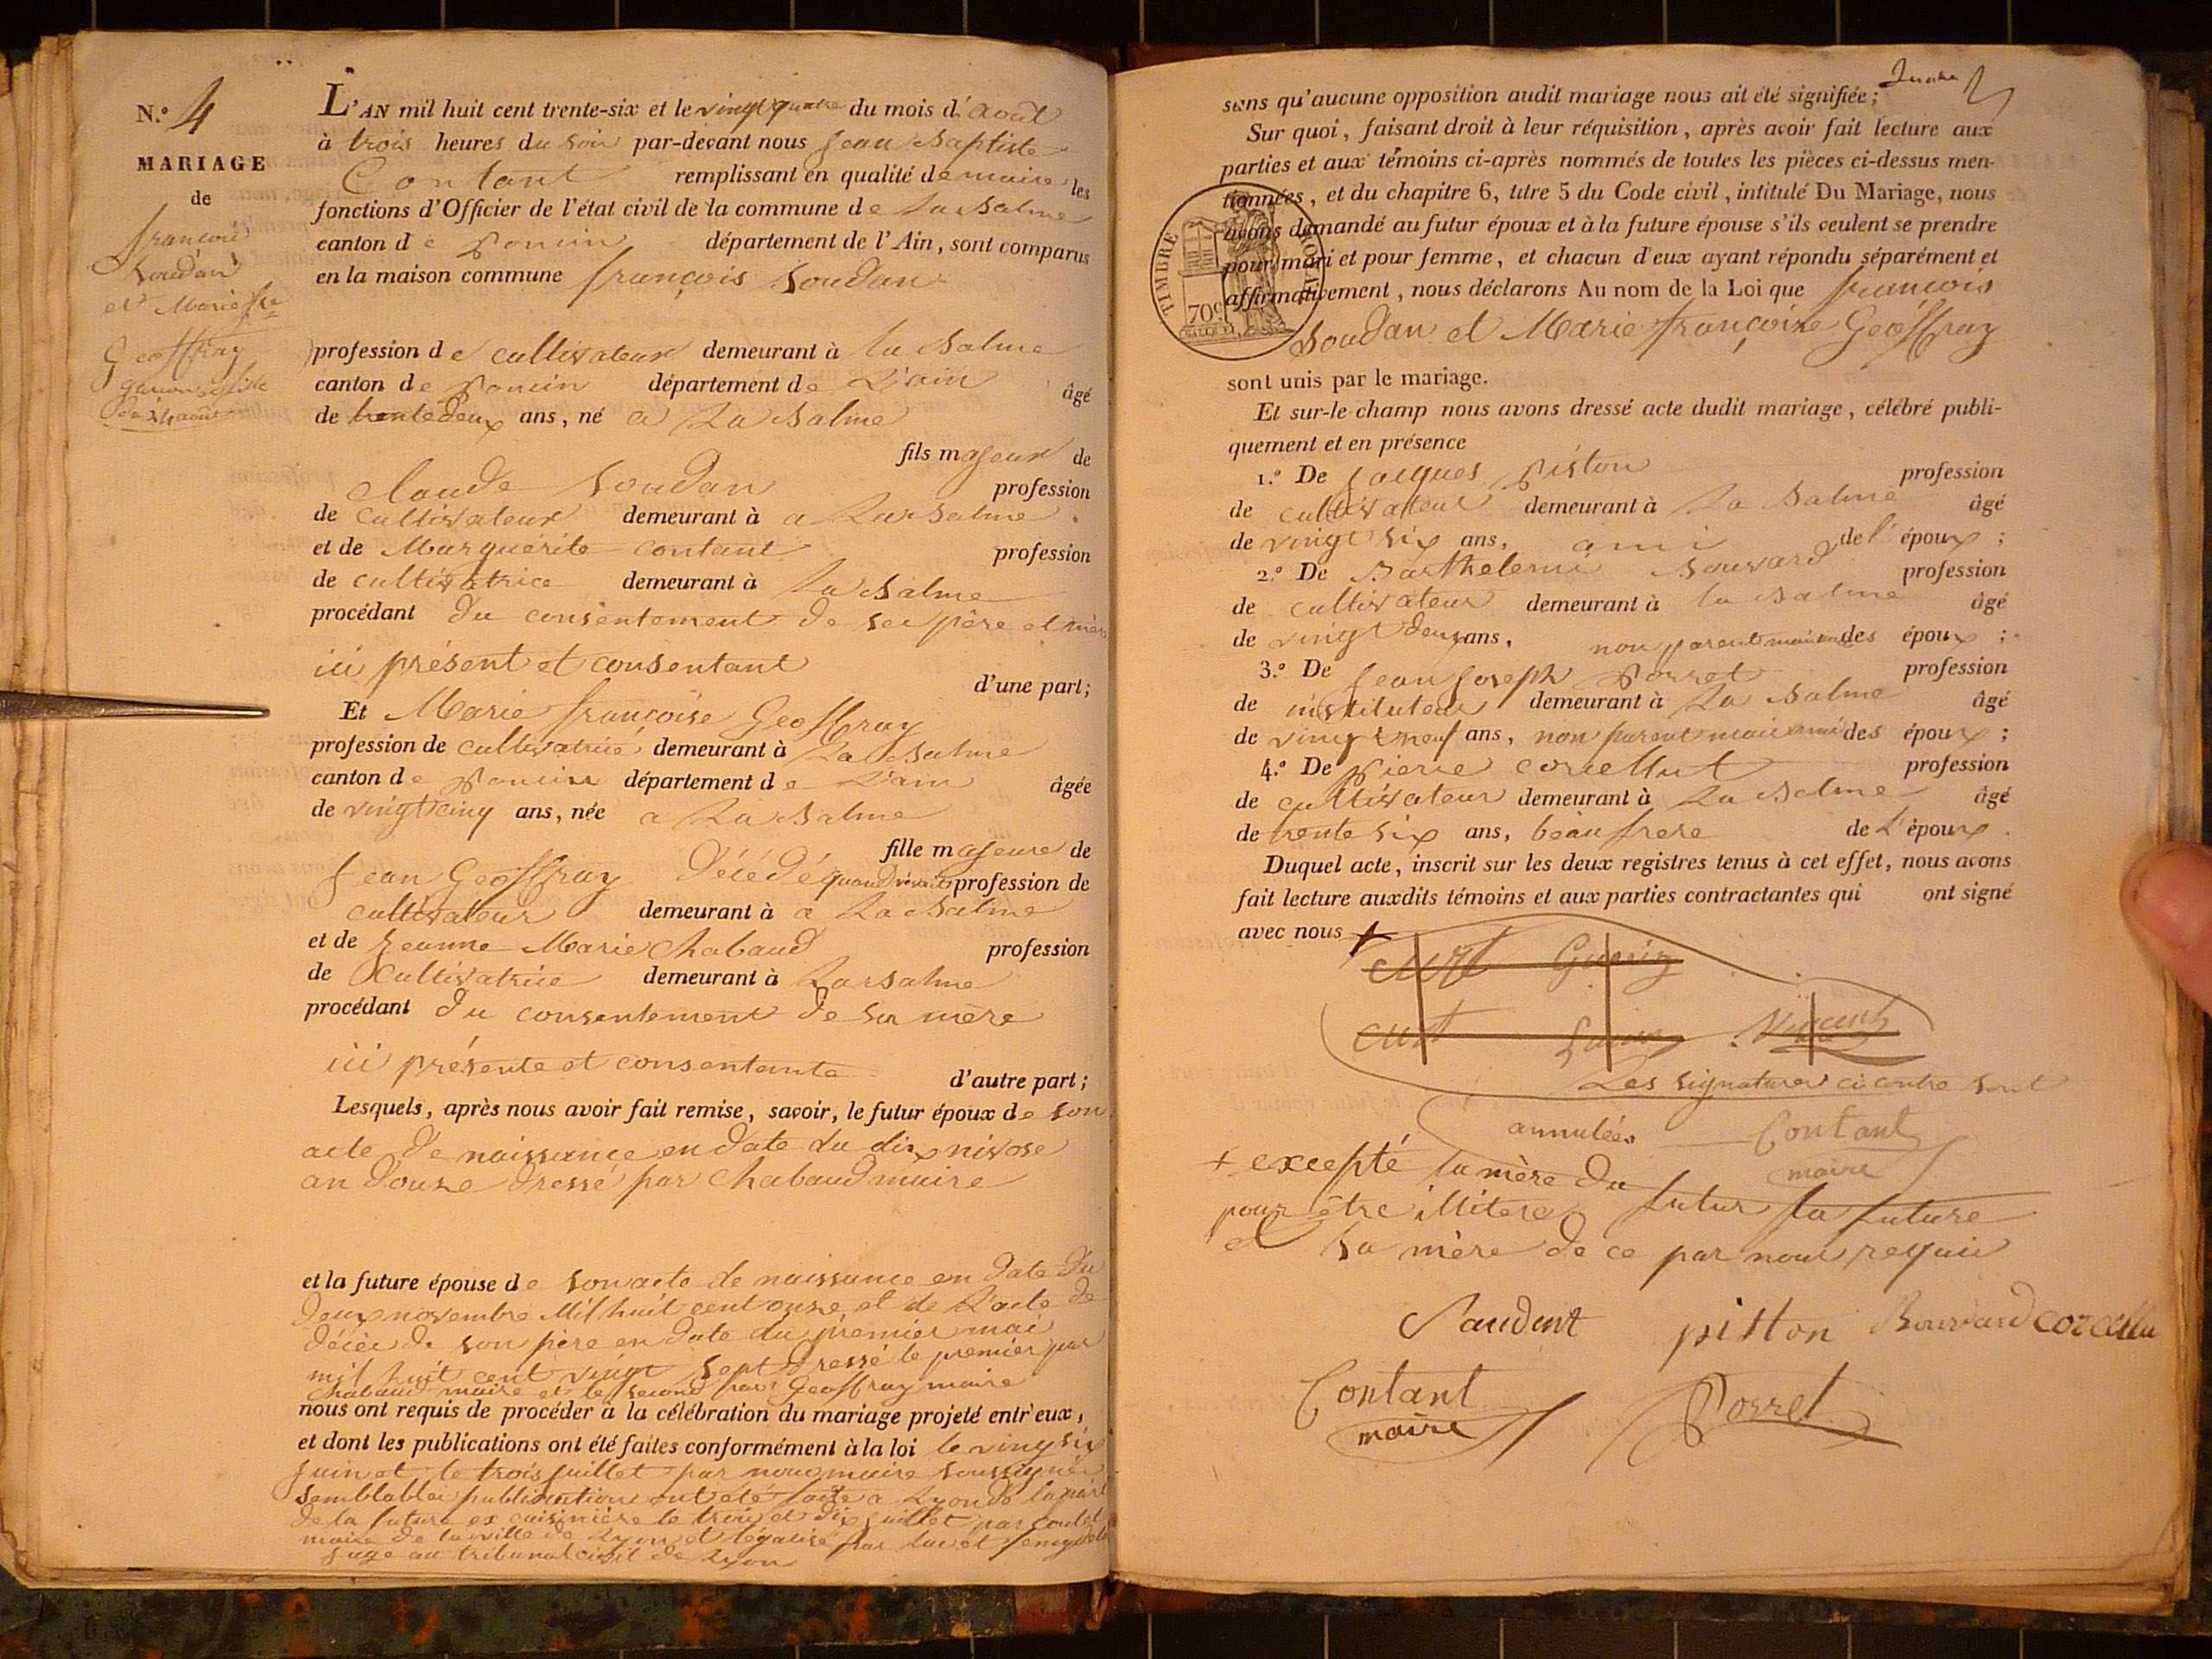 N.º 4
MARIAGE
de
françois
Soudan
et Marie f.se
Geoffray
garçon et fille
du 24 août
L'AN mil huit cent trente-six et le vingt quatre du mois d'août
à trois heures du soir par-devant nous Jean Baptiste
Contant remplissant en qualité de maire les
fonctions d'Officier de l'état civil de la commune de la Balme
canton de Poncin département de l'Ain, sont comparus
en la maison commune françois Soudan
profession de cultivateur demeurant à la Balme
canton de Poncin département de L'ain âgé
de trente deux ans, né a La Balme
fils majeur de
Claude Soudan profession
de cultivateur demeurant à a La Balme
et de Marguerite contant profession
de cultivatrice demeurant à La Balme
procédant du consentement de ses père et mère
ici présent et consentant
d'une part;
Et Marie françoise Geoffray
profession de cultivatrice demeurant à La Balme
canton de Poncin département de L'ain âgée
de vingt cinq ans, née a La Balme
fille majeure de
Jean Geoffray Décédé quand vivait profession de
cultivateur demeurant à a La Balme
et de Jeanne Marie Chabaud profession
de Cultivatrice demeurant à La Balme
procédant du consentement de sa mère
ici présente et consentante
d'autre part;
Lesquels, après nous avoir fait remise, savoir, le futur époux de son
acte de naissance en date du dix nivose
an douze dressé par Chabaud maire
et la future épouse de son acte de naissance en date du
deux novembre Mil huit cent onze et de L'acte de
décès de son père en date du premier mai
mil huit cent vingt sept dressé le premier par
Chabaud maire et le second par Geoffray maire
nous ont requis de procéder à la célébration du mariage projeté entr'eux,
et dont les publications ont été faites conformément à la loi le vingt six
Juin et le trois Juillet par nous maire soussigné
semblables publications ont été faite a Lyon de la part
de la future ex cuisinière le trois et dix Juillet par
maire de la ville de Lyon et légalisé par
Juge au tribunal civil de Lyon
sans qu'aucune opposition audit mariage nous ait été signifiée;
Sur quoi, faisant droit à leur réquisition, après avoir fait lecture aux
parties et aux témoins ci-après nommés de toutes les pièces ci-dessus men-
tionnées, et du chapitre 6, titre 5 du Code civil, intitulé Du Mariage, nous
avons demandé au futur époux et à la future épouse s'ils veulent se prendre
pour mari et pour femme, et chacun d'eux ayant répondu séparément et
affirmativement, nous déclarons Au nom de la Loi que françois
Soudan et Marie françoise Geoffray
TIMBRE ROYAL
70c
sont unis par le mariage.
Et sur-le champ nous avons dressé acte dudit mariage, célébré publi-
quement et en présence
1.º De Jacques Piston profession
de cultivateur demeurant à La Balme âgé
de vingt six ans, ami de l'époux;
2.º De Barthelemi Bouvard profession
de cultivateur demeurant à la Balme âgé
de vingt deux ans, non parent mais ami des époux;
3.º De Jean Joseph Porret profession
de instituteur demeurant à La Balme âgé
de vingt neuf ans, non parent mais ami des époux;
4.º De Pierre corcellut profession
de cultivateur demeurant à La Balme âgé
de trente six ans, beau frere de L'époux.
Duquel acte, inscrit sur les deux registres tenus à cet effet, nous avons
fait lecture auxdits témoins et aux parties contractantes qui ont signé
avec nous +
Les signatures ci contre sont
annulées Contant
maire
+ excepté la mère du futur la future
pour être illiteré
et sa mère de ce par nous requis
Saudent piston Bouvard
Contant Porret
maire